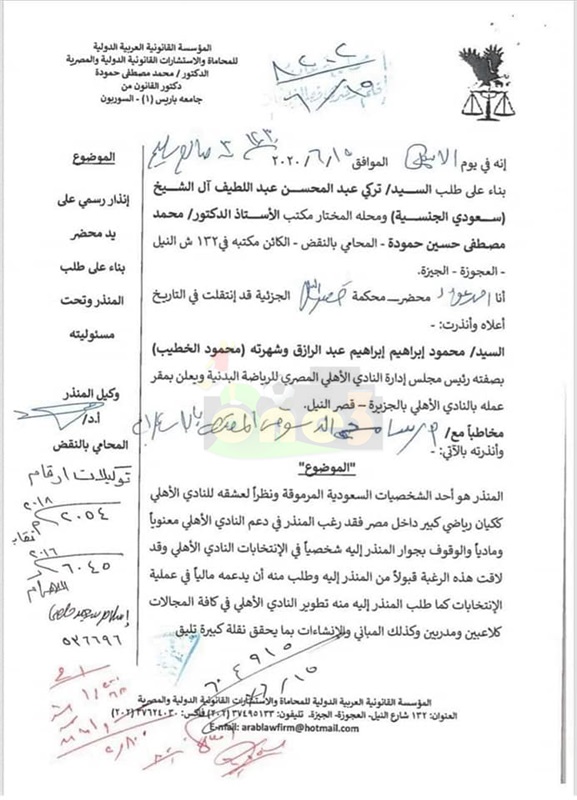 المؤسسة القانونية العربية الدولية
للمحاماة والاستشارات القانونية الدولية والمصرية
الدكتور / محمد مصطفى حمودة
دكتور القانون من
جامعه باريس (١) - السوربون
إنه في يوم الموافق ١٥ / ٦ / ٢٠٢٠
بناء على طلب السيد/ تركي عبد المحسن عبد اللطيف آل الشيخ
(سعودي الجنسية) ومحله المختار مكتب الأستاذ الدكتور/ محمد
مصطفى حسين حمودة - المحامي بالنقض - الكائن مكتبه في ١٣٢ ش النيل
- العجوزة - الجيزة.
أنا محضر- محكمة الجزئية قد إنتقلت في التاريخ
أعلاه وأنذرت: -
السيد/ محمود إبراهيم إبراهيم عبد الرازق وشهرته (محمود الخطيب)
بصفته رئيس مجلس إدارة النادي الأهلي المصري للرياضة البدنية ويعلن بمقر
عمله بالنادي الأهلي بالجزيرة – قصر النيل.
مخاطباً مع/
وأنذرته بالآتي: -
"الموضوع"
المنذر هو أحد الشخصيات السعودية المرموقة ونظراً لعشقه للنادي الأهلي
ككيان رياضي كبير داخل مصر فقد رغب المنذر في دعم النادي الأهلي معنوياً
ومادياً والوقوف بجوار المنذر إليه شخصياً في الإنتخابات النادي الأهلي وقد
لاقت هذه الرغبة قبولاً من المنذر إليه وطلب منه أن يدعمه مالياً في عملية
الإنتخابات كما طلب المنذر إليه منه تطوير النادي الأهلي في كافة المجالات
كلاعبين ومدربين وكذلك المباني والإنشاءات بما يحقق نقلة كبيرة تليق
الموضوع
إنذار رسمي على
يد محضر
بناء على طلب
المنذر وتحت
مسئوليته
وكيل المنذر
أ.د/
المحامي بالنقض
توكيلات ارقام
٢٠١٨
٢٠٥٤
٢٠١٦
٦٠٤٥
٥٣٦٦٩٦
المؤسسة القانونية العربية الدولية للمحاماة والاستشارات القانونية الدولية والمصرية
العنوان: ١٣٢ شارع النيل- العجوزة- الجيزة. تليفون: ٣٧٤٩٥١٣٣ (٢٠٢) فاكس: ٣٧٦٢٤٠٣٠ (٢٠٢)
E-mail: arablawfirm@hotmail.com